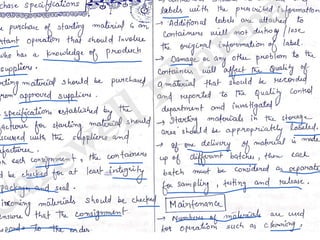 chase specifications
purchase of starting material is an
tant operation that should involve
who has a knowledge of products
suppliers.
rting material should be purchased
from approved suppliers.
specifications established by the
facturer for starting material should
scussed with the suppliers and
facturer.
each consignment, the containers
d be checked for at least integrity
package and seal.
incoming materials should be checked
ensure that the consignment
to the order.
labels with the provided information
→ Additional labels are attached to
containers will not distroy / lose
the original information of label.
→ Damage or any other problem to the
containers will affect the quality of
a material that should be recorded
and reported to the quality control
department and investigated
→ Starting materials in the storage
area should be appropriately labeled.
→ If one delivery of material is made
up of different batches, then each
batch must be considered as separate
for sampling, testing and release.
Maintenance
→ Numbers of materials are used
for operations such as cleaning,